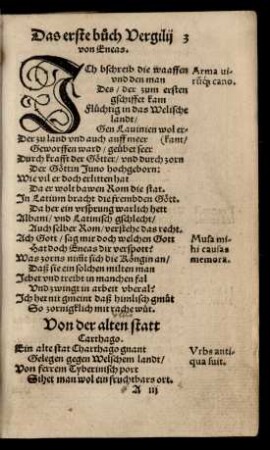 Das erste bůch Vergilij 3
von Eneas.
ICh bschreib die waaffen
vnd den man
Des/ der zum ersten
gschiffet kam
Flüchtig in das Welische
landt/
Gen Lauinien wol er-
Der zu land vnd auch auff meer (kant/
Geworffen ward/ geůbet seer
Durch krafft der Götter/ vnd durch zorn
Der Göttin Juno hochgeborn:
Wie vil er doch erlitten hat
Da er wolt bawen Rom die stat.
In Latium bracht die frembden Gött.
Da her ein vrsprung warlich hett
Albani/ vnd Latinisch gschlecht/
Auch selber Rom/ verstehe das recht.
Ach Gott/ sag mir doch welchen Gott
Hat doch Eneas dir verspott?
Was zorns nim̃t sich die Köngin an/
Daß sie ein solchen milten man
Jehet vnd treibt in manchen fal
Vnd zwingt in arbeit vberal?
Ich het nit gmeint daß himlisch gmůt
So zorniglich mit rache wůt.
Von der alten statt
Carthago.
Ein alte stat Charthago gnant
Gelegen gegen Welschem landt/
Von ferrem Tyberinisch port
Sihet man wol ein fruchtbars ort.
A iij
Arma ui-
rũq; cano.
Musa mi-
hi causas
memora.
Vrbs anti-
qua fuit.